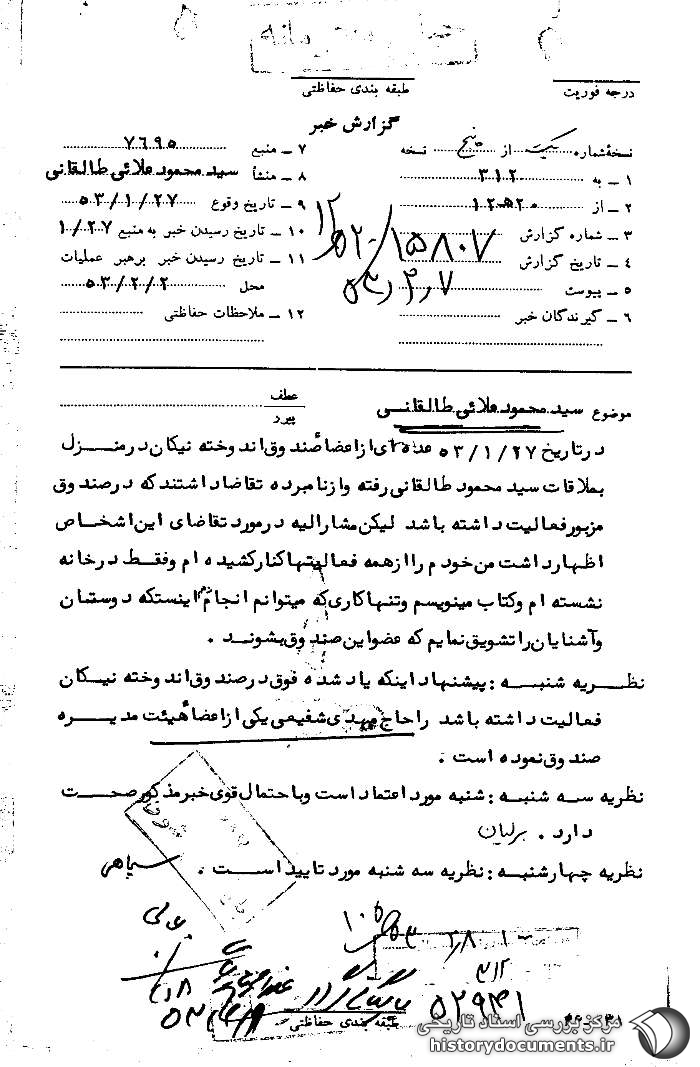 طبقه بندی حفاظتی
درجه فوریت
گزارش خبر
نسخهٔ شماره یک از پنج نسخه
۱ ــ به ۳۱۲
۲ ــ از ۲۰ ه‍ ۱۲
۳ ــ شماره گزارش ۱۵۸۰۷
۴ ــ تاریخ گزارش
۵ ــ پیوست
۶ ــ گیرندگان خبر
۷ ــ منبع ۷۶۹۵
۸ ــ منشأ سید محمود علائی طالقانی
۹ ــ تاریخ وقوع ۵۳/۱/۲۷
۱۰ ــ تاریخ رسیدن خبر به منبع ۱/۲۷
۱۱ ــ تاریخ رسیدن خبر برهبر عملیات
محل ۵۳/۲/۲
۱۲ ــ ملاحظات حفاظتی
موضوع سید محمود علائی طالقانی
عطف
پیرو
در تاریخ ۵۳/۱/۲۷ عده ای از اعضا صندوق اندوخته نیکان در منزل
بملاقات سید محمود طالقانی رفته و از نامبرده تقاضا داشتند که در صندوق
مزبور فعالیت داشته باشد لیکن مشارالیه در مورد تقاضای این اشخاص
اظهار داشت من خودم را از همه فعالیتها کنار کشیده ام و فقط در خانه
نشسته ام و کتاب مینویسم و تنها کاری که میتوانم انجام دهم اینستکه دوستان
و آشنایان را تشویق نمایم که عضو این صندوق بشوند .
نظریه شنبه : پیشنهاد اینکه یاد شده فوق در صندوق اندوخته نیکان
فعالیت داشته باشد را حاج مهدی شفیعی یکی از اعضا هیئت مدیره
صندوق نموده است .
نظریه سه شنبه : شنبه مورد اعتماد است و با احتمال قوی خبر مذکور صحت
دارد . برلیان
نظریه چهارشنبه : نظریه سه شنبه مورد تایید است . سپاهی
بایگانی گردد
۳۱۲
۵۲۹۴۱
طبقه بندی حفاظتی
مرکز بررسی اسناد تاریخی
historydocuments.ir